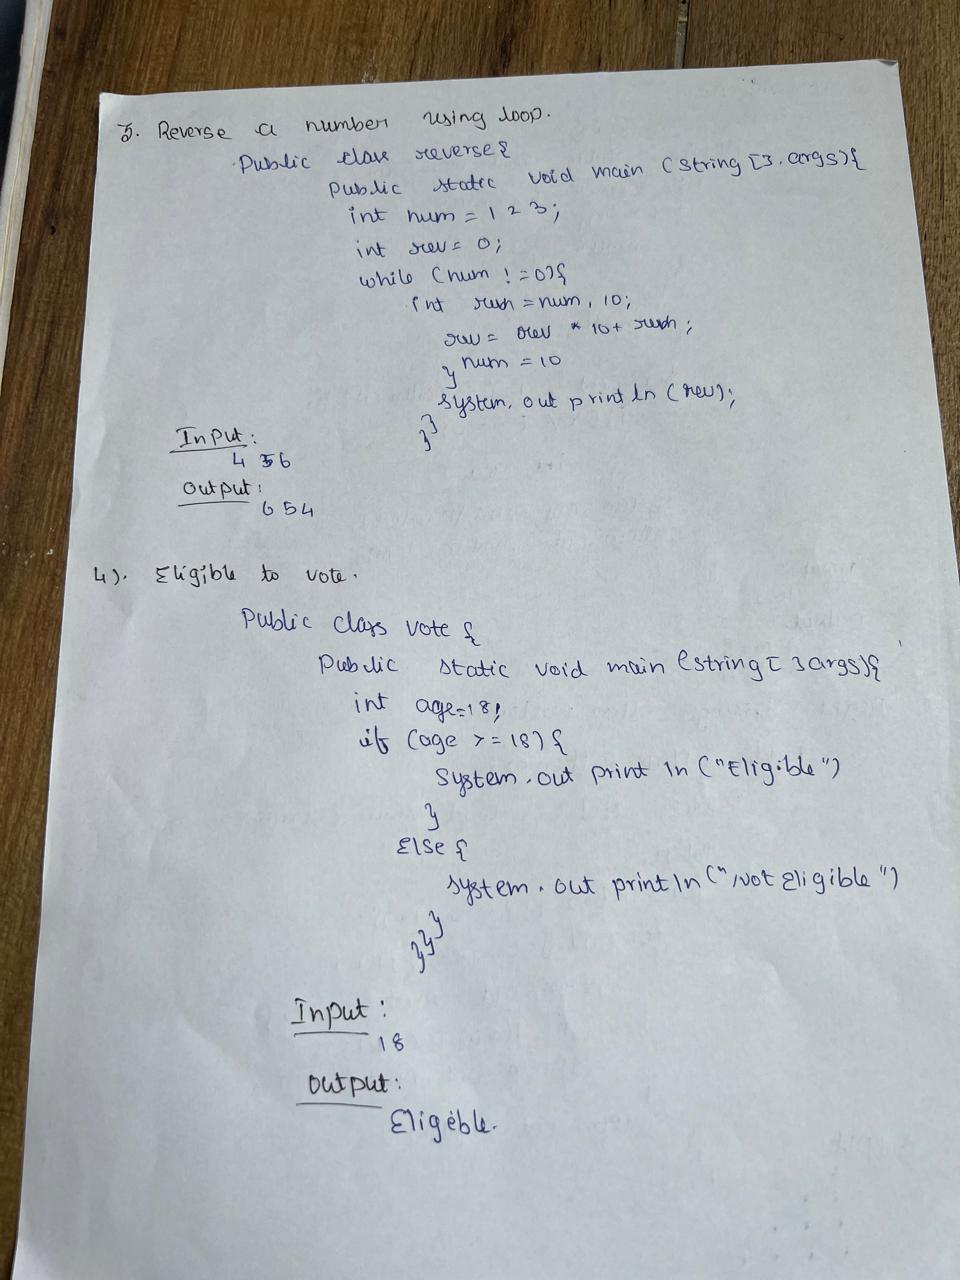 3. Reverse a number using loop.
Public class reverse {
Public static void main (string [3. args) {
int num = 1 2 3;
int rev = 0;
while (num != 0) {
int = num, 10;
rev = rev * 10 + ;
} num = 10
System. out println (rev);
}
}
Input:
4 56
Output:
654
4). Eligible to vote.
Public class vote {
Public static void main (string [ ] args) {
int age = 18;
if (age >= 18) {
System. out print ln ("Eligible")
}
Else {
System. out println ("Not Eligible")
}
}
}
Input:
18
output:
Eligible.